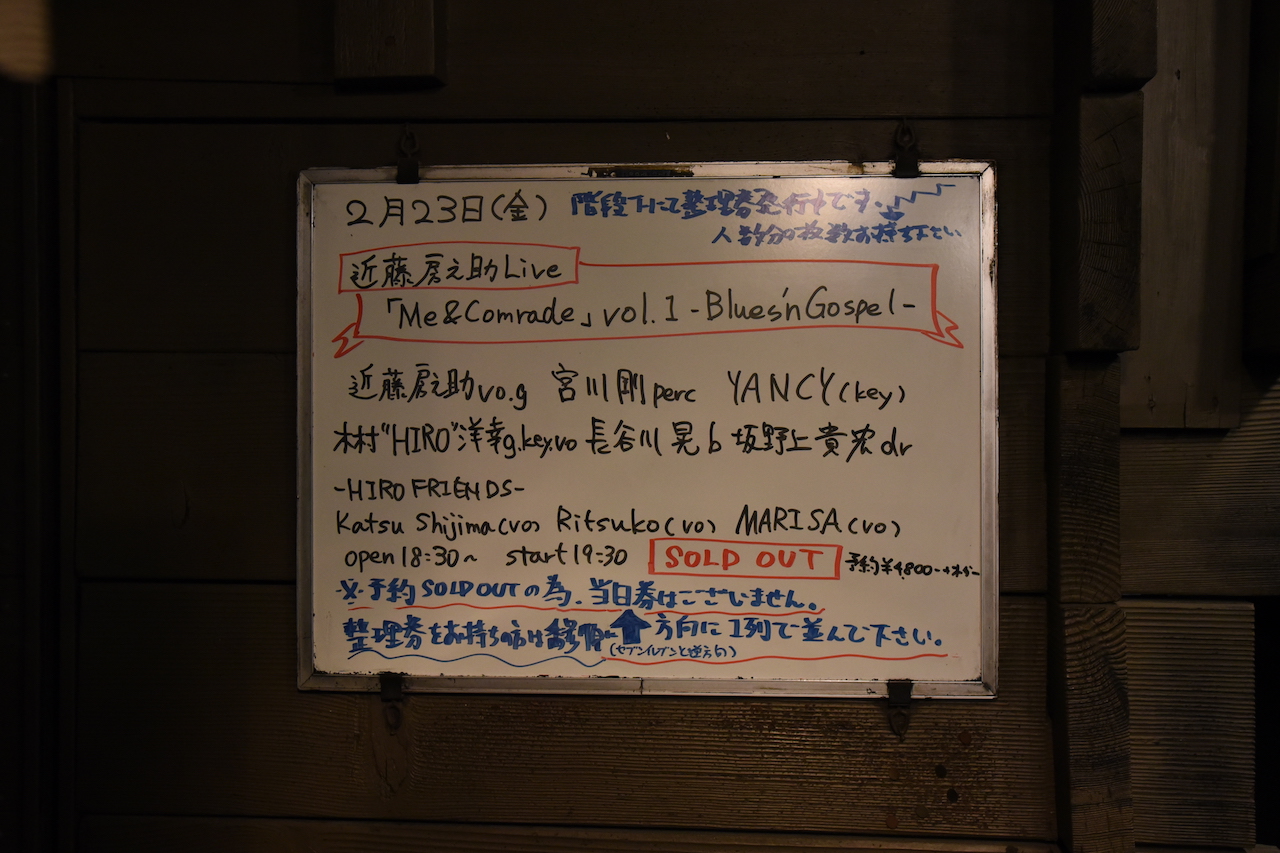 2月23日(金) 階段下にて整理券発行中です。
人数分の枚数お持ち下さい
近藤房之助Live
「Me&Comrade」vol.1 -Blues'n Gospel-
近藤房之助vo.g 宮川剛perc YANCY(key)
木村"HIRO"洋幸g.key.vo 長谷川晃b 坂野上貴宏dr
-HIRO FRIENDS-
Katsu Shijima(vo) Ritsuko(vo) MARISA(vo)
open18:30~ start19:30 SOLD OUT 予約¥4,800-+オーダー
※予約SOLD OUTの為、当日券はございません。
整理券をお持ちの方は ↑方向に1列で並んで下さい。
(セブンイレブンと逆方向)